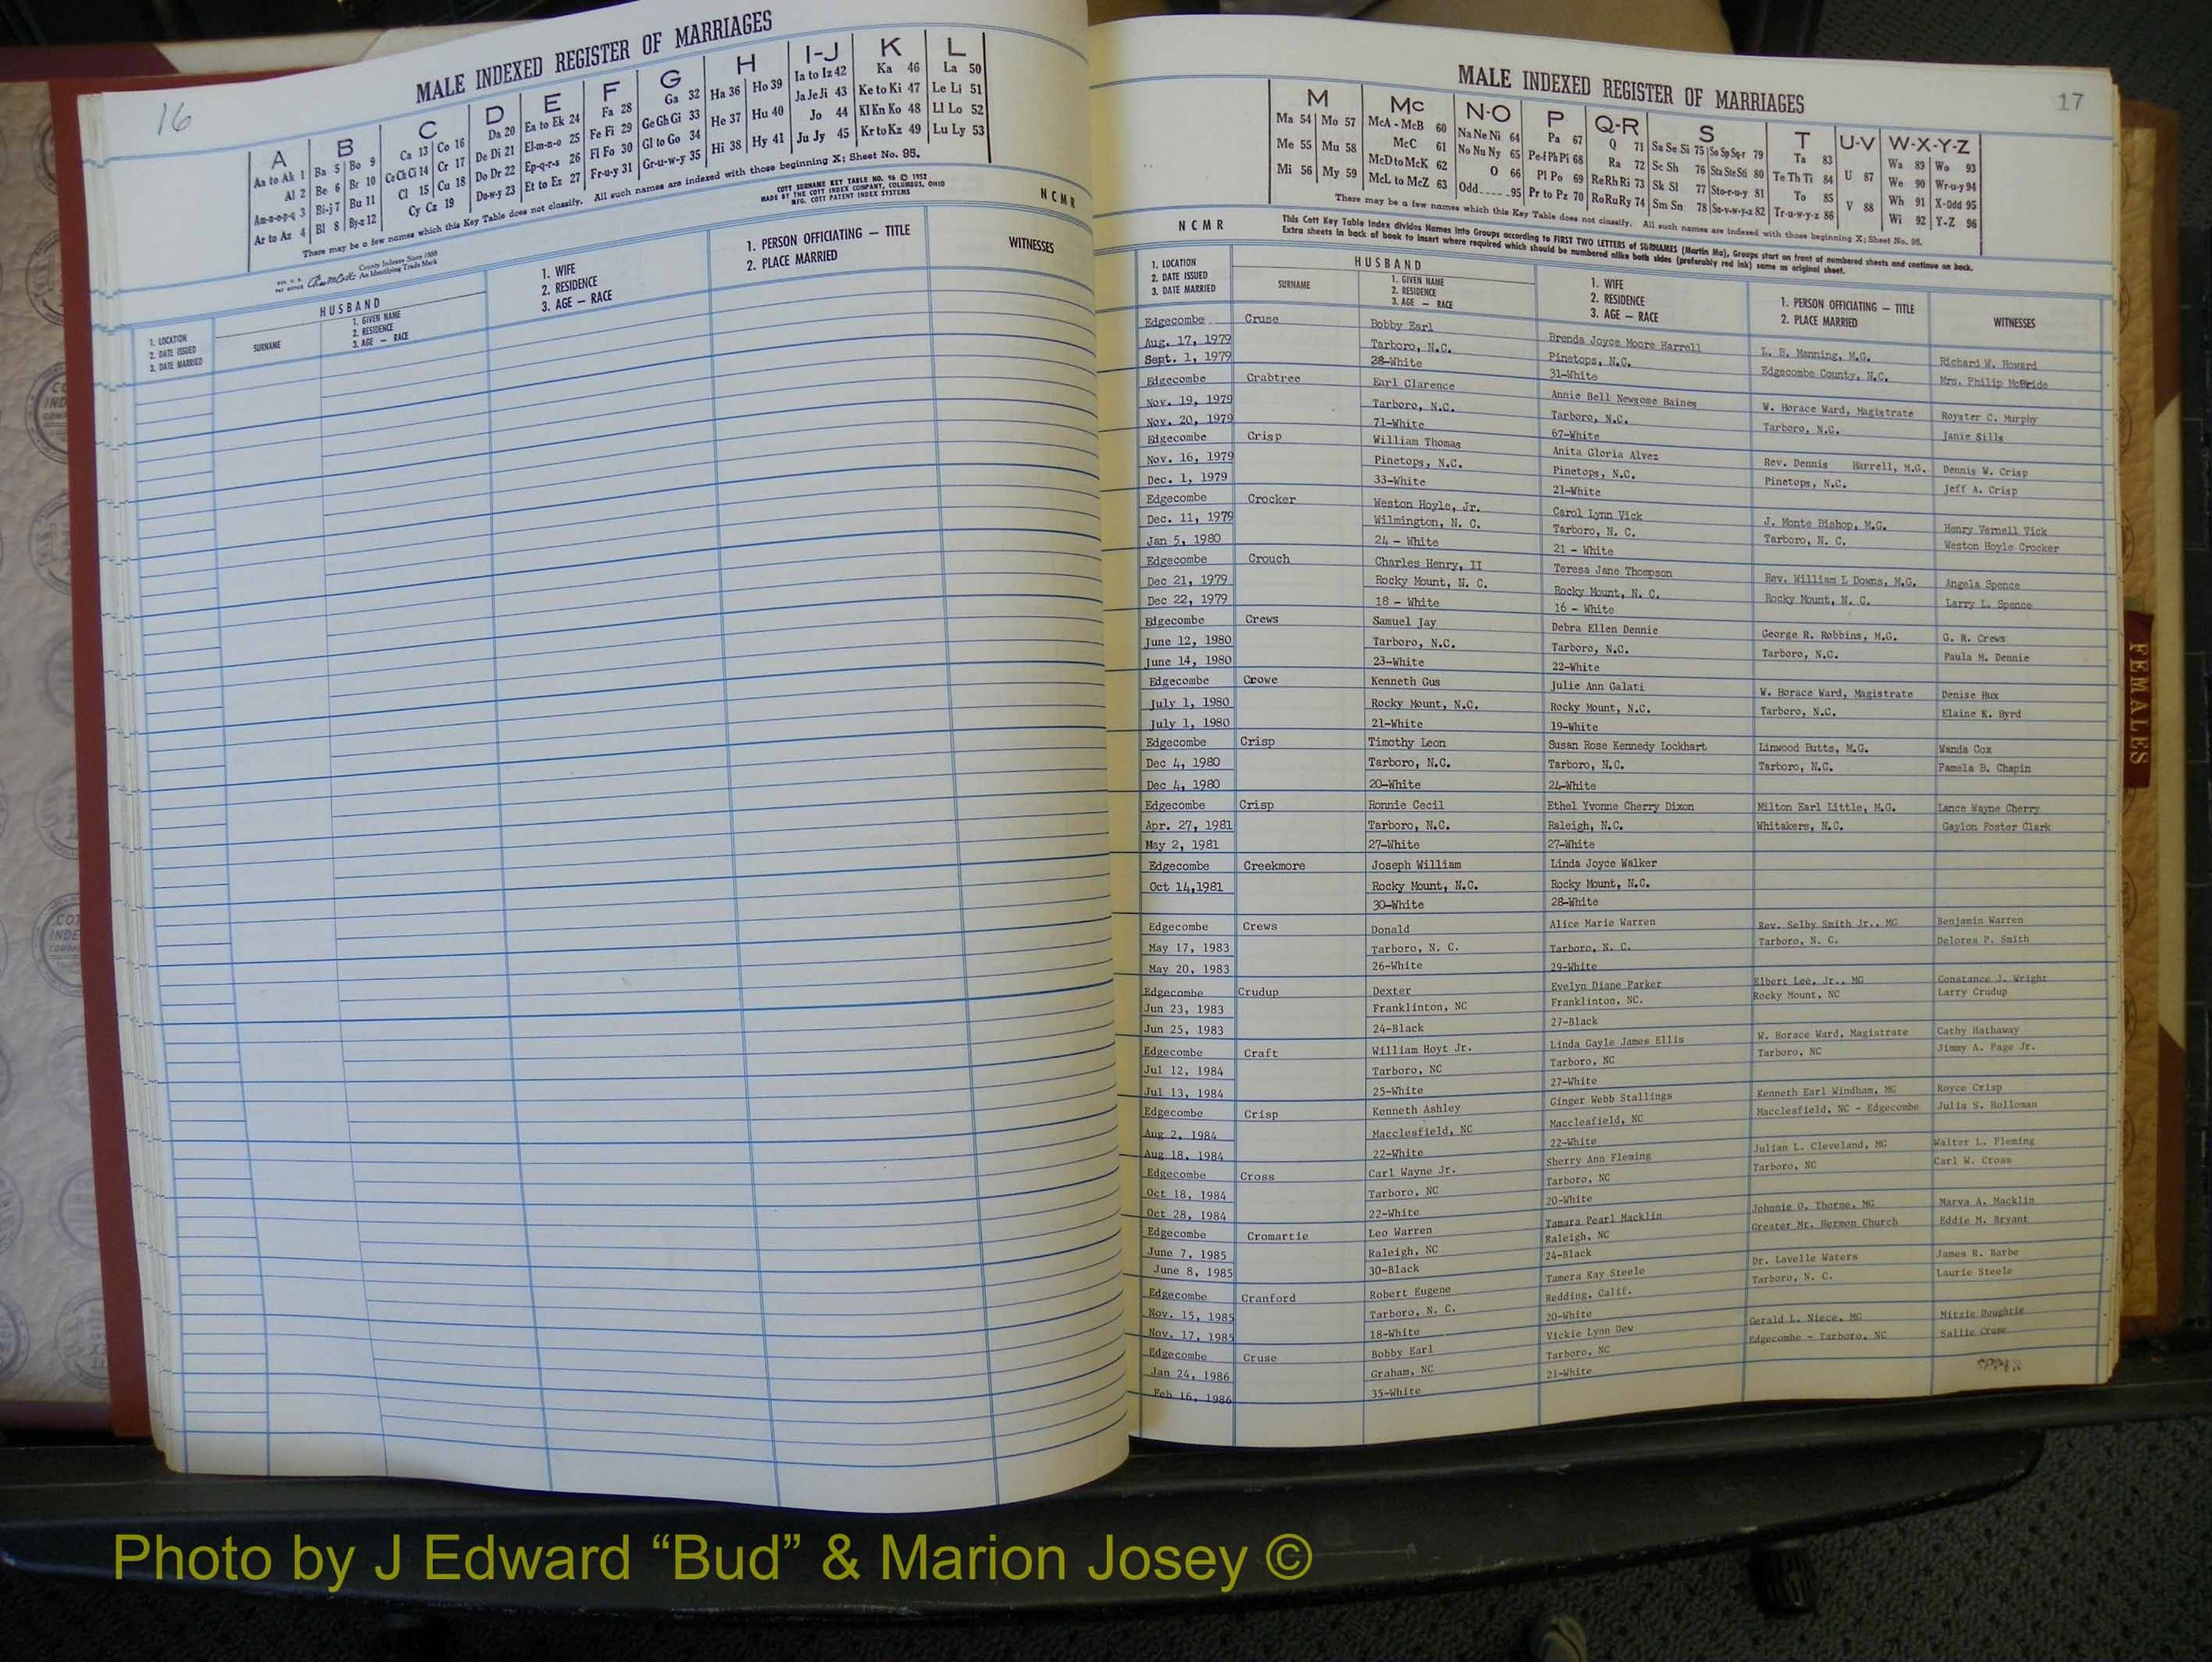 16
MALE INDEXED REGISTER OF MARRIAGES
A B C D E F G H I-J K L
Aa to Ak 1 Ba 5 Bo 9 Ca 13 Co 16 Da 20 Ea to Ek 24 Fa 28 Ga 32 Ha 36 Ho 39 Ia to Iz 42 Ka 46 La 50
Al 2 Be 6 Br 10 Ce Ch Ci 14 Cr 17 De Di 21 El-m-n-o 25 Fe Fi 29 Ge Gh Gi 33 He 37 Hu 40 Ja Je Ji 43 Ke to Ki 47 Le Li 51
Am-n-o-p-q 3 Bi-j 7 Bu 11 Cl 15 Cu 18 Do Dr 22 Ep-q-r-s 26 Fl Fo 30 Gl to Go 34 Hi 38 Hy 41 Jo 44 Kl Kn Ko 48 Ll Lo 52
Ar to Az 4 Bl 8 By-z 12 Cy Cz 19 Du-w-y 23 Et to Ez 27 Fr-u-y 31 Gr-u-w-y 35 Ju Jy 45 Kr to Kz 49 Lu Ly 53
There may be a few names which this Key Table does not classify. All such names are indexed with those beginning X; Sheet No. 95.
COTT SURNAME KEY TABLE NO. 96 © 1952
MADE BY THE COTT INDEX COMPANY, COLUMBUS, OHIO
MFG. COTT PATENT INDEX SYSTEMS
N C M R
County Indexes Since 1888
An Identifying Trade Mark
1. LOCATION
2. DATE ISSUED
3. DATE MARRIED
HUSBAND
SURNAME
1. GIVEN NAME
2. RESIDENCE
3. AGE — RACE
1. WIFE
2. RESIDENCE
3. AGE — RACE
1. PERSON OFFICIATING — TITLE
2. PLACE MARRIED
WITNESSES
MALE INDEXED REGISTER OF MARRIAGES
17
M Mc N-O P Q-R S T U-V W-X-Y-Z
Ma 54 Mo 57 McA - McB 60 Na Ne Ni 64 Pa 67 Q 71 Sa Se Si 75 So Sp Sq-r 79 Ta 83 U 87 Wa 89 Wo 93
Me 55 Mu 58 McC 61 No Nu Ny 65 Pe-f Ph Pi 68 Ra 72 Sc Sh 76 Sta Ste Sti 80 Te Th Ti 84 We 90 Wr-u-y 94
Mi 56 My 59 McD to McK 62 O 66 Pl Po 69 Re Rh Ri 73 Sk Sl 77 Sto-r-u-y 81 To 85 V 88 Wh 91 X-Odd 95
McL to McZ 63 Odd 95 Pr to Pz 70 Ro Ru Ry 74 Sm Sn 78 Su-v-w-y-z 82 Tr-u-w-y-z 86 Wi 92 Y-Z 96
There may be a few names which this Key Table does not classify. All such names are indexed with those beginning X; Sheet No. 95.
N C M R
This Cott Key Table Index divides Names into Groups according to FIRST TWO LETTERS of SURNAMES (Martin Ma), Groups start on front of numbered sheets and continue on back.
Extra sheets in back of book to insert where required which should be numbered alike both sides (preferably red ink) same as original sheet.
1. LOCATION
2. DATE ISSUED
3. DATE MARRIED
HUSBAND
SURNAME
1. GIVEN NAME
2. RESIDENCE
3. AGE — RACE
1. WIFE
2. RESIDENCE
3. AGE — RACE
1. PERSON OFFICIATING — TITLE
2. PLACE MARRIED
WITNESSES
Edgecombe Cruse Bobby Earl Brenda Joyce Moore Harrell L. B. Manning, M.G. Richard W. Howard
Aug. 17, 1979 Tarboro, N.C. Pinetops, N.C. Edgecombe County, N.C. Mrs. Philip McBride
Sept. 1, 1979 28-White 31-White
Edgecombe Crabtree Earl Clarence Annie Bell Newsome Baines W. Horace Ward, Magistrate Royster C. Murphy
Nov. 19, 1979 Tarboro, N.C. Tarboro, N.C. Tarboro, N.C. Janie Sills
Nov. 20, 1979 71-White 67-White
Edgecombe Crisp William Thomas Anita Gloria Alvez Rev. Dennis Harrell, M.G. Dennis W. Crisp
Nov. 16, 1979 Pinetops, N.C. Pinetops, N.C. Pinetops, N.C. Jeff A. Crisp
Dec. 1, 1979 33-White 21-White
Edgecombe Crocker Weston Hoyle, Jr. Carol Lynn Vick J. Monte Bishop, M.G. Henry Vernell Vick
Dec. 11, 1979 Wilmington, N. C. Tarboro, N. C. Tarboro, N. C. Weston Hoyle Crocker
Jan 5, 1980 24 - White 21 - White
Edgecombe Crouch Charles Henry, II Teresa Jane Thompson Rev. William L Downs, M.G. Angela Spence
Dec 21, 1979 Rocky Mount, N. C. Rocky Mount, N. C. Rocky Mount, N. C. Larry L. Spence
Dec 22, 1979 18 - White 16 - White
Edgecombe Crews Samuel Jay Debra Ellen Dennie George R. Robbins, M.G. G. R. Crews
June 12, 1980 Tarboro, N.C. Tarboro, N.C. Tarboro, N.C. Paula M. Dennie
June 14, 1980 23-White 22-White
Edgecombe Crowe Kenneth Gus Julie Ann Galati W. Horace Ward, Magistrate Denise Hux
July 1, 1980 Rocky Mount, N.C. Rocky Mount, N.C. Tarboro, N.C. Elaine K. Byrd
July 1, 1980 21-White 19-White
Edgecombe Crisp Timothy Leon Susan Rose Kennedy Lockhart Linwood Butts, M.G. Wanda Cox
Dec 4, 1980 Tarboro, N.C. Tarboro, N.C. Tarboro, N.C. Pamela B. Chapin
Dec 4, 1980 20-White 24-White
Edgecombe Crisp Ronnie Cecil Ethel Yvonne Cherry Dixon Milton Earl Little, M.G. Lance Wayne Cherry
Apr. 27, 1981 Tarboro, N.C. Raleigh, N.C. Whitakers, N.C. Gaylon Foster Clark
May 2, 1981 27-White 27-White
Edgecombe Creekmore Joseph William Linda Joyce Walker
Oct 14,1981 Rocky Mount, N.C. Rocky Mount, N.C.
30-White 28-White
Edgecombe Crews Donald Alice Marie Warren Rev. Selby Smith Jr., MG Benjamin Warren
May 17, 1983 Tarboro, N. C. Tarboro, N. C. Tarboro, N. C. Delores P. Smith
May 20, 1983 26-White 29-White
Edgecombe Crudup Dexter Evelyn Diane Parker Elbert Lee, Jr., MG Constance J. Wright
Jun 23, 1983 Franklinton, NC Franklinton, NC. Rocky Mount, NC Larry Crudup
Jun 25, 1983 24-Black 27-Black
Edgecombe Craft William Hoyt Jr. Linda Gayle James Ellis W. Horace Ward, Magistrate Cathy Hathaway
Jul 12, 1984 Tarboro, NC Tarboro, NC Tarboro, NC Jimmy A. Page Jr.
Jul 13, 1984 25-White 27-White
Edgecombe Crisp Kenneth Ashley Ginger Webb Stallings Kenneth Earl Windham, MG Royce Crisp
Aug 2, 1984 Macclesfield, NC Macclesfield, NC Macclesfield, NC - Edgecombe Julia S. Holloman
Aug 18, 1984 22-White 22-White
Edgecombe Cross Carl Wayne Jr. Sherry Ann Fleming Julian L. Cleveland, MG Walter L. Fleming
Oct 18, 1984 Tarboro, NC Tarboro, NC Tarboro, NC Carl W. Cross
Oct 28, 1984 22-White 20-White
Edgecombe Cromartie Leo Warren Tamara Pearl Macklin Johnnie O. Thorne, MG Marva A. Macklin
June 7, 1985 Raleigh, NC Raleigh, NC Greater Mt. Hermon Church Eddie M. Bryant
June 8, 1985 30-Black 24-Black
Edgecombe Cranford Robert Eugene Tamera Kay Steele Dr. Lavelle Waters James R. Barbe
Nov. 15, 1985 Tarboro, N. C. Redding, Calif. Tarboro, N. C. Laurie Steele
Nov. 17, 1985 18-White 20-White
Edgecombe Cruse Bobby Earl Vickie Lynn Dew Gerald L. Niece, MG Mitzie Doughtie
Jan 24, 1986 Graham, NC Tarboro, NC Edgecombe - Tarboro, NC Sallie Cruse
Feb 16, 1986 35-White 21-White
FEMALES
Photo by J Edward “Bud” & Marion Josey ©